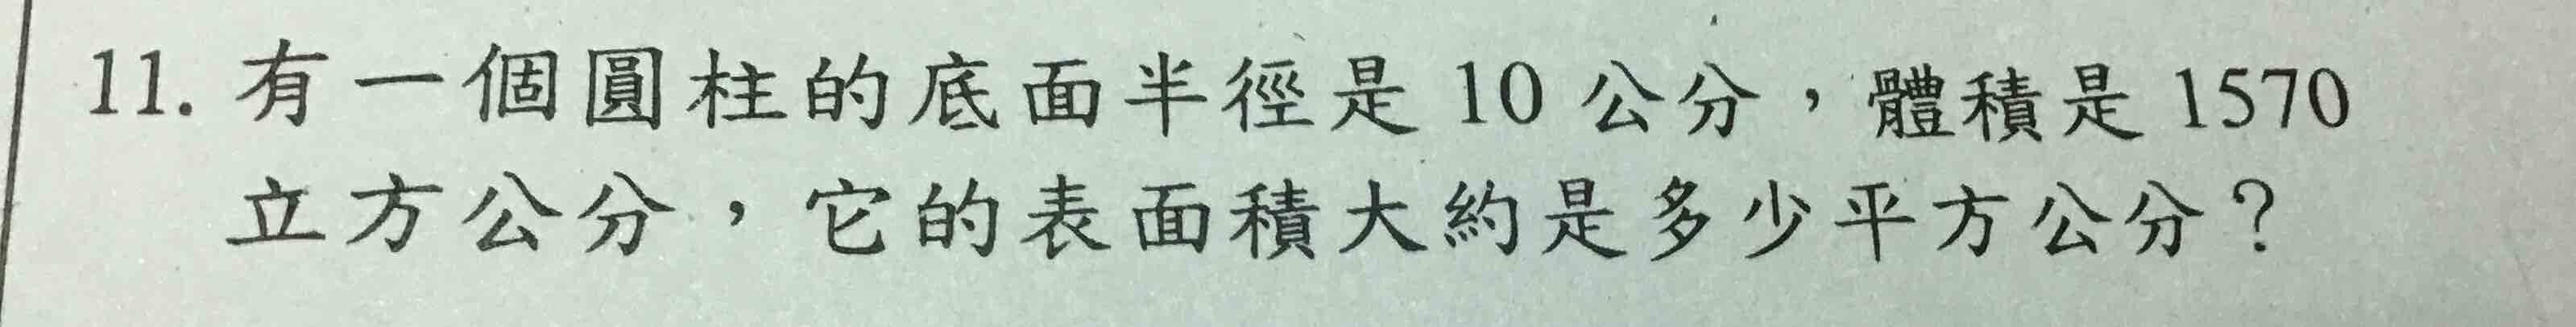 11. 有一個圓柱的底面半徑是 10 公分，體積是 1570
立方公分，它的表面積大約是多少平方公分？